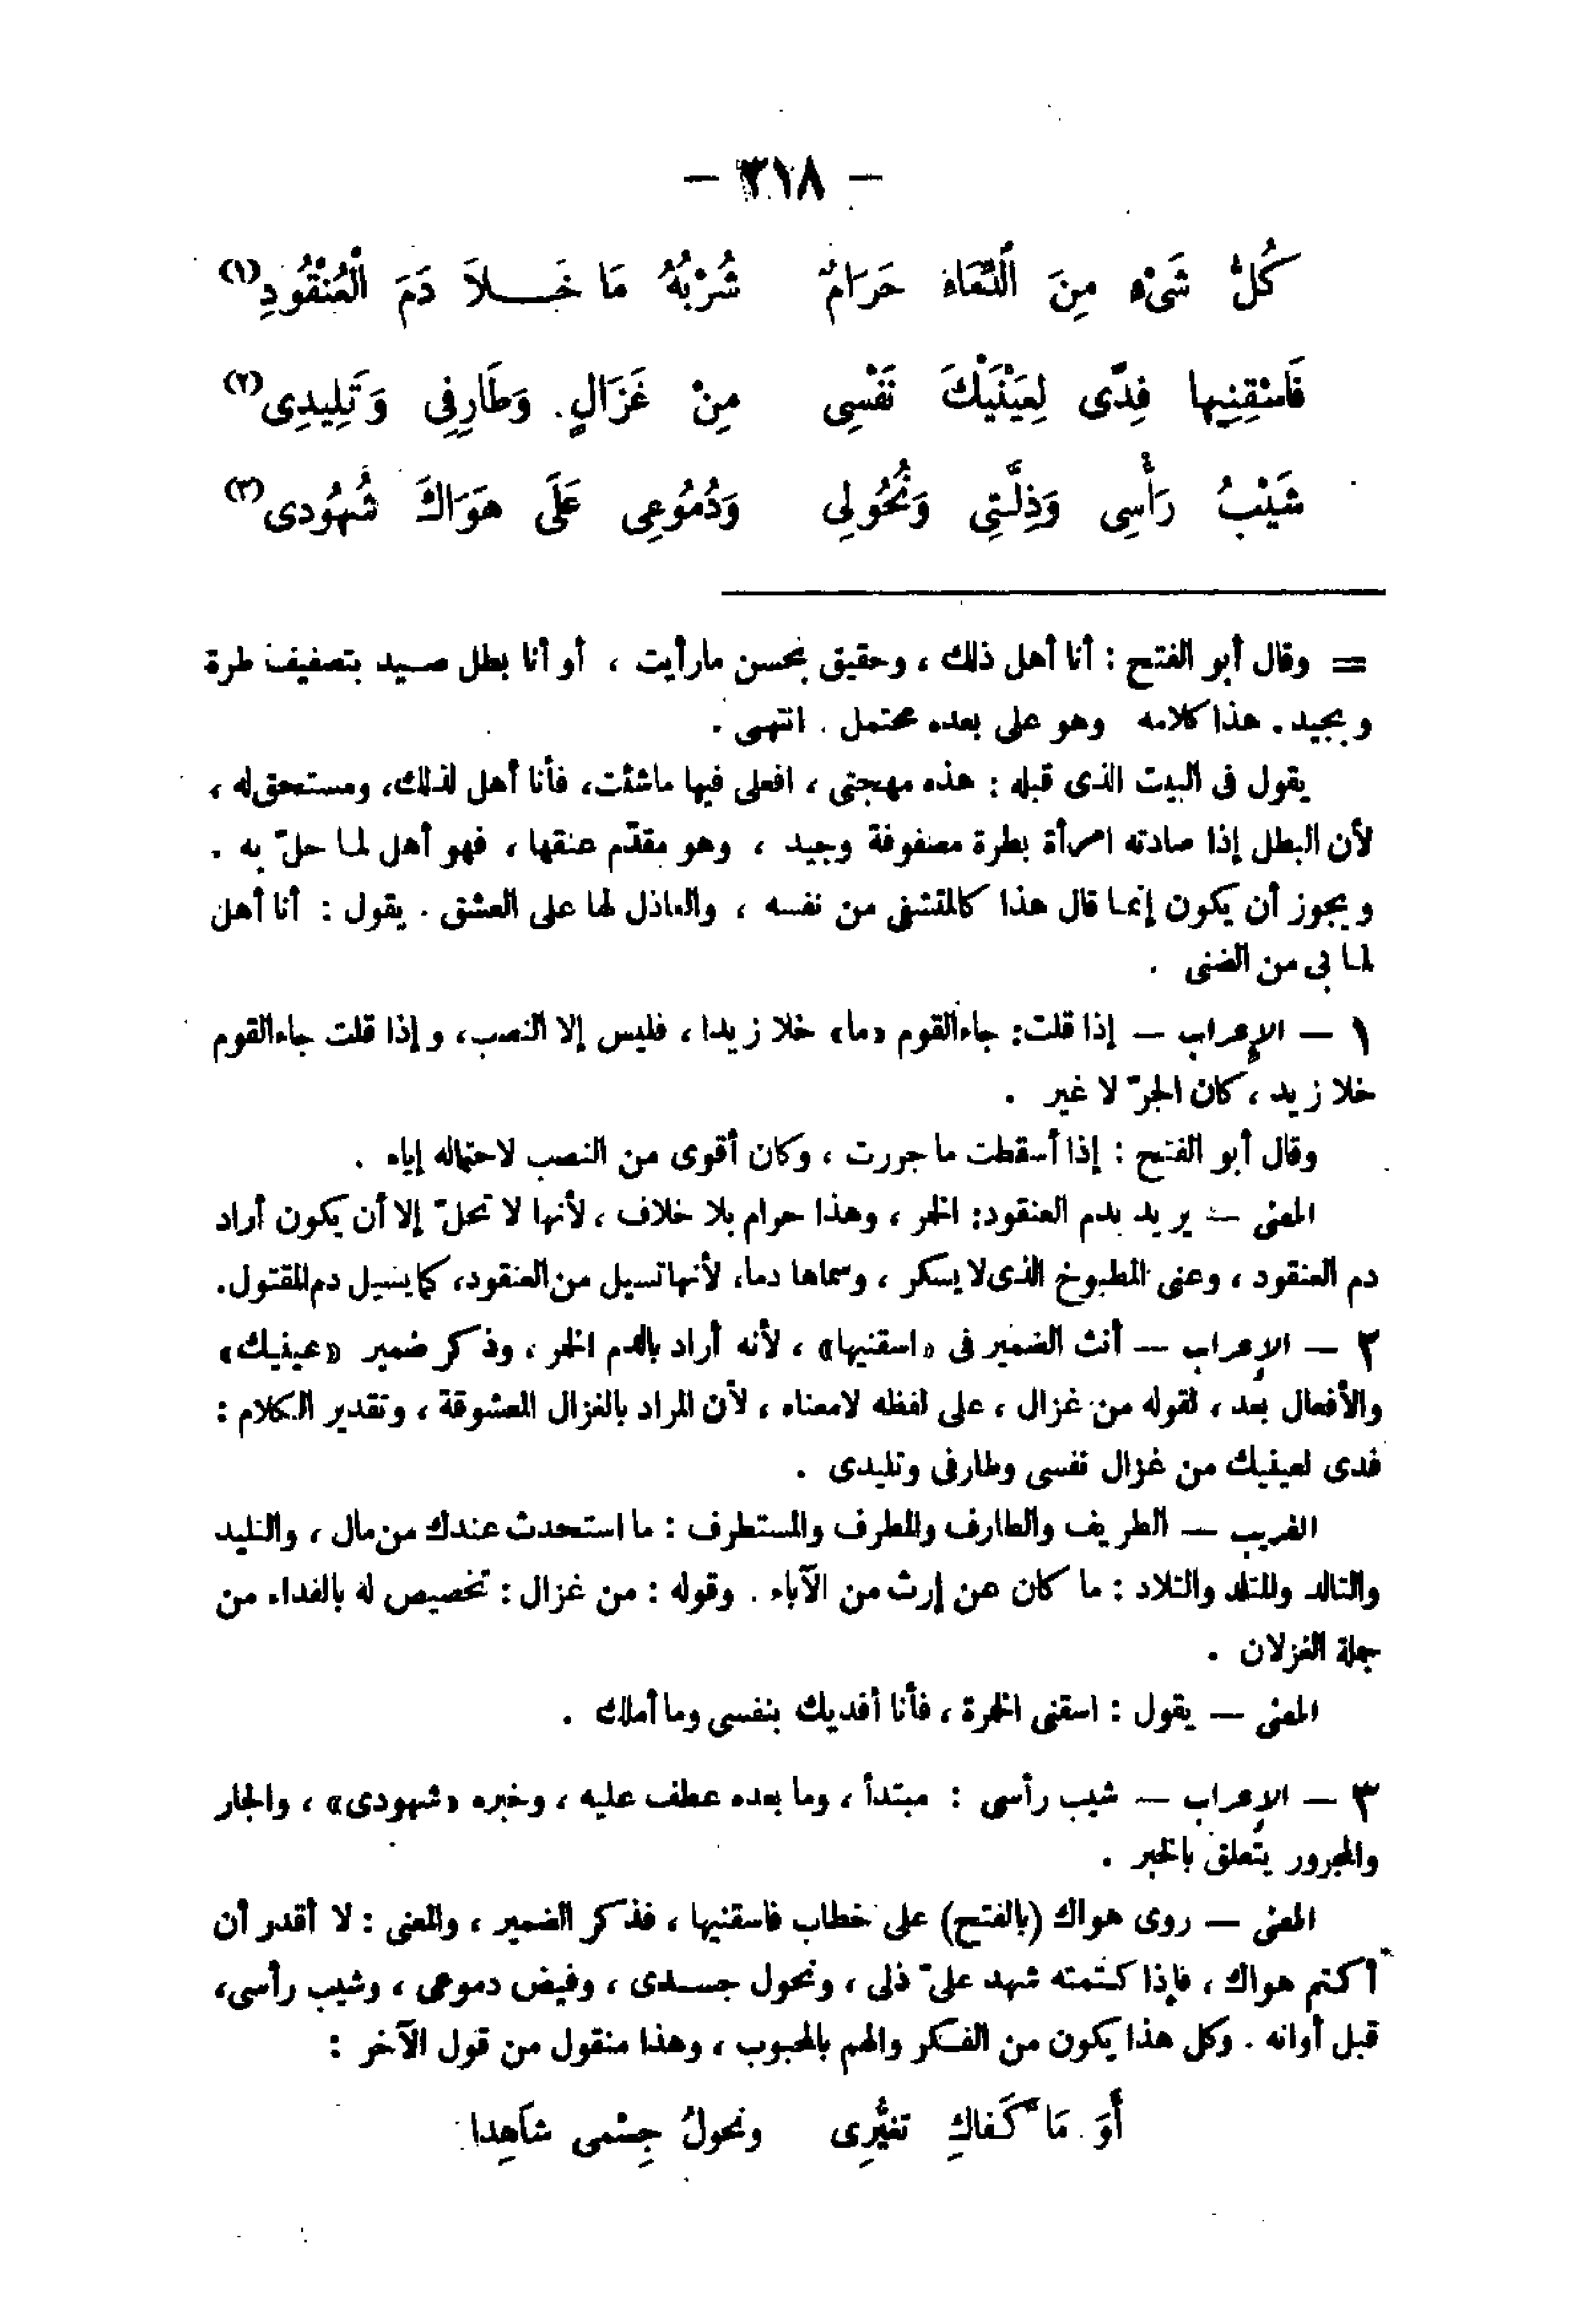 — ٣١٨ —
كُلُّ شَىْءٍ مِنَ الدِّمَاءِ حَرَامٌ شُرْبُهُ مَا خَــلاَ دَمَ الْعُنْقُودِ(١)
فَاسْقِنِيهَا فِدًى لِعَيْنَيْكَ نَفْسِى مِنْ غَزَالٍ وَطَارِفِى وَتَلِيدِى(٢)
شَيْبُ رَأْسِى وَذِلَّتِى وَنُحُولِى وَدُمُوعِى عَلَى هَوَاكَ شُهُودى(٣)
= وقال أبو الفتح : أنا أهل ذلك ، وحقيق بحسن مارأيت ، أو أنا بطل صــيد بتصفيف طرة
وبجيد . هذا كلامه وهو على بعده محتمل . انتهى .
يقول فى البيت الذى قبله : هذه مهجتى ، افعلى فيها ماشئت ، فأنا أهل لذلك ، ومستحق له ،
لأن البطل إذا صادته امرأة بطرة مصفوفة وجيد ، وهو مقدّم عنقها ، فهو أهل لما حلّ به .
ويجوز أن يكون إنما قال هذا كالمتشفى من نفسه ، والعاذل لها على العشق . يقول : أنا أهل
لما بى من الضنى .
١ — الإعراب — إذا قلت : جاء القوم «ما» خلا زيدا ، فليس إلا النصب ، وإذا قلت جاء القوم
خلا زيد ، كان الجرّ لا غير .
وقال أبو الفتح : إذا أسقطت ما جررت ، وكان أقوى من النصب لاحتماله إياه .
المعنى — يريد بدم العنقود : الخمر ، وهذا حرام بلا خلاف ، لأنها لا تحلّ إلا أن يكون أراد
دم العنقود ، وعنى المطبوخ الذى لا يسكر ، وسماها دما ، لأنها تسيل من العنقود ، كما يسيل دم المقتول .
٢ — الإعراب — أنث الضمير فى «اسقنيها» ، لأنه أراد بالدم الخمر ، وذكر ضمير «عينيك»
والأفعال بعد ، لقوله من غزال ، على لفظه لامعناه ، لأن المراد بالغزال المعشوقة ، وتقدير الكلام :
فدى لعينيك من غزال نفسى وطارفى وتليدى .
الغريب — الطريف والطارف والمطرف والمستطرف : ما استحدث عندك من مال ، والتليد
والتالد والمتلد والتلاد : ما كان عن إرث من الآباء . وقوله : من غزال : تخصيص له بالفداء من
جملة الغزلان .
المعنى — يقول : اسقنى الخمرة ، فأنا أفديك بنفسى وما أملك .
٣ — الإعراب — شيب رأسى : مبتدأ ، وما بعده عطف عليه ، وخبره «شهودى» ، والجار
والمجرور يتعلق بالخبر .
المعنى — روى هواك (بالفتح) على خطاب فاسقنيها ، فذكر الضمير ، والمعنى : لا أقدر أن
أكتم هواك ، فإذا كتمته شهد علىّ ذلى ، ونحول جســدى ، وفيض دموعى ، وشيب رأسى ،
قبل أوانه . وكل هذا يكون من الفكر والهم بالمحبوب ، وهذا منقول من قول الآخر :
أَوَ مَا كَفاكِ تغيُّرِى ونحولُ جِسْمى شاهِدا